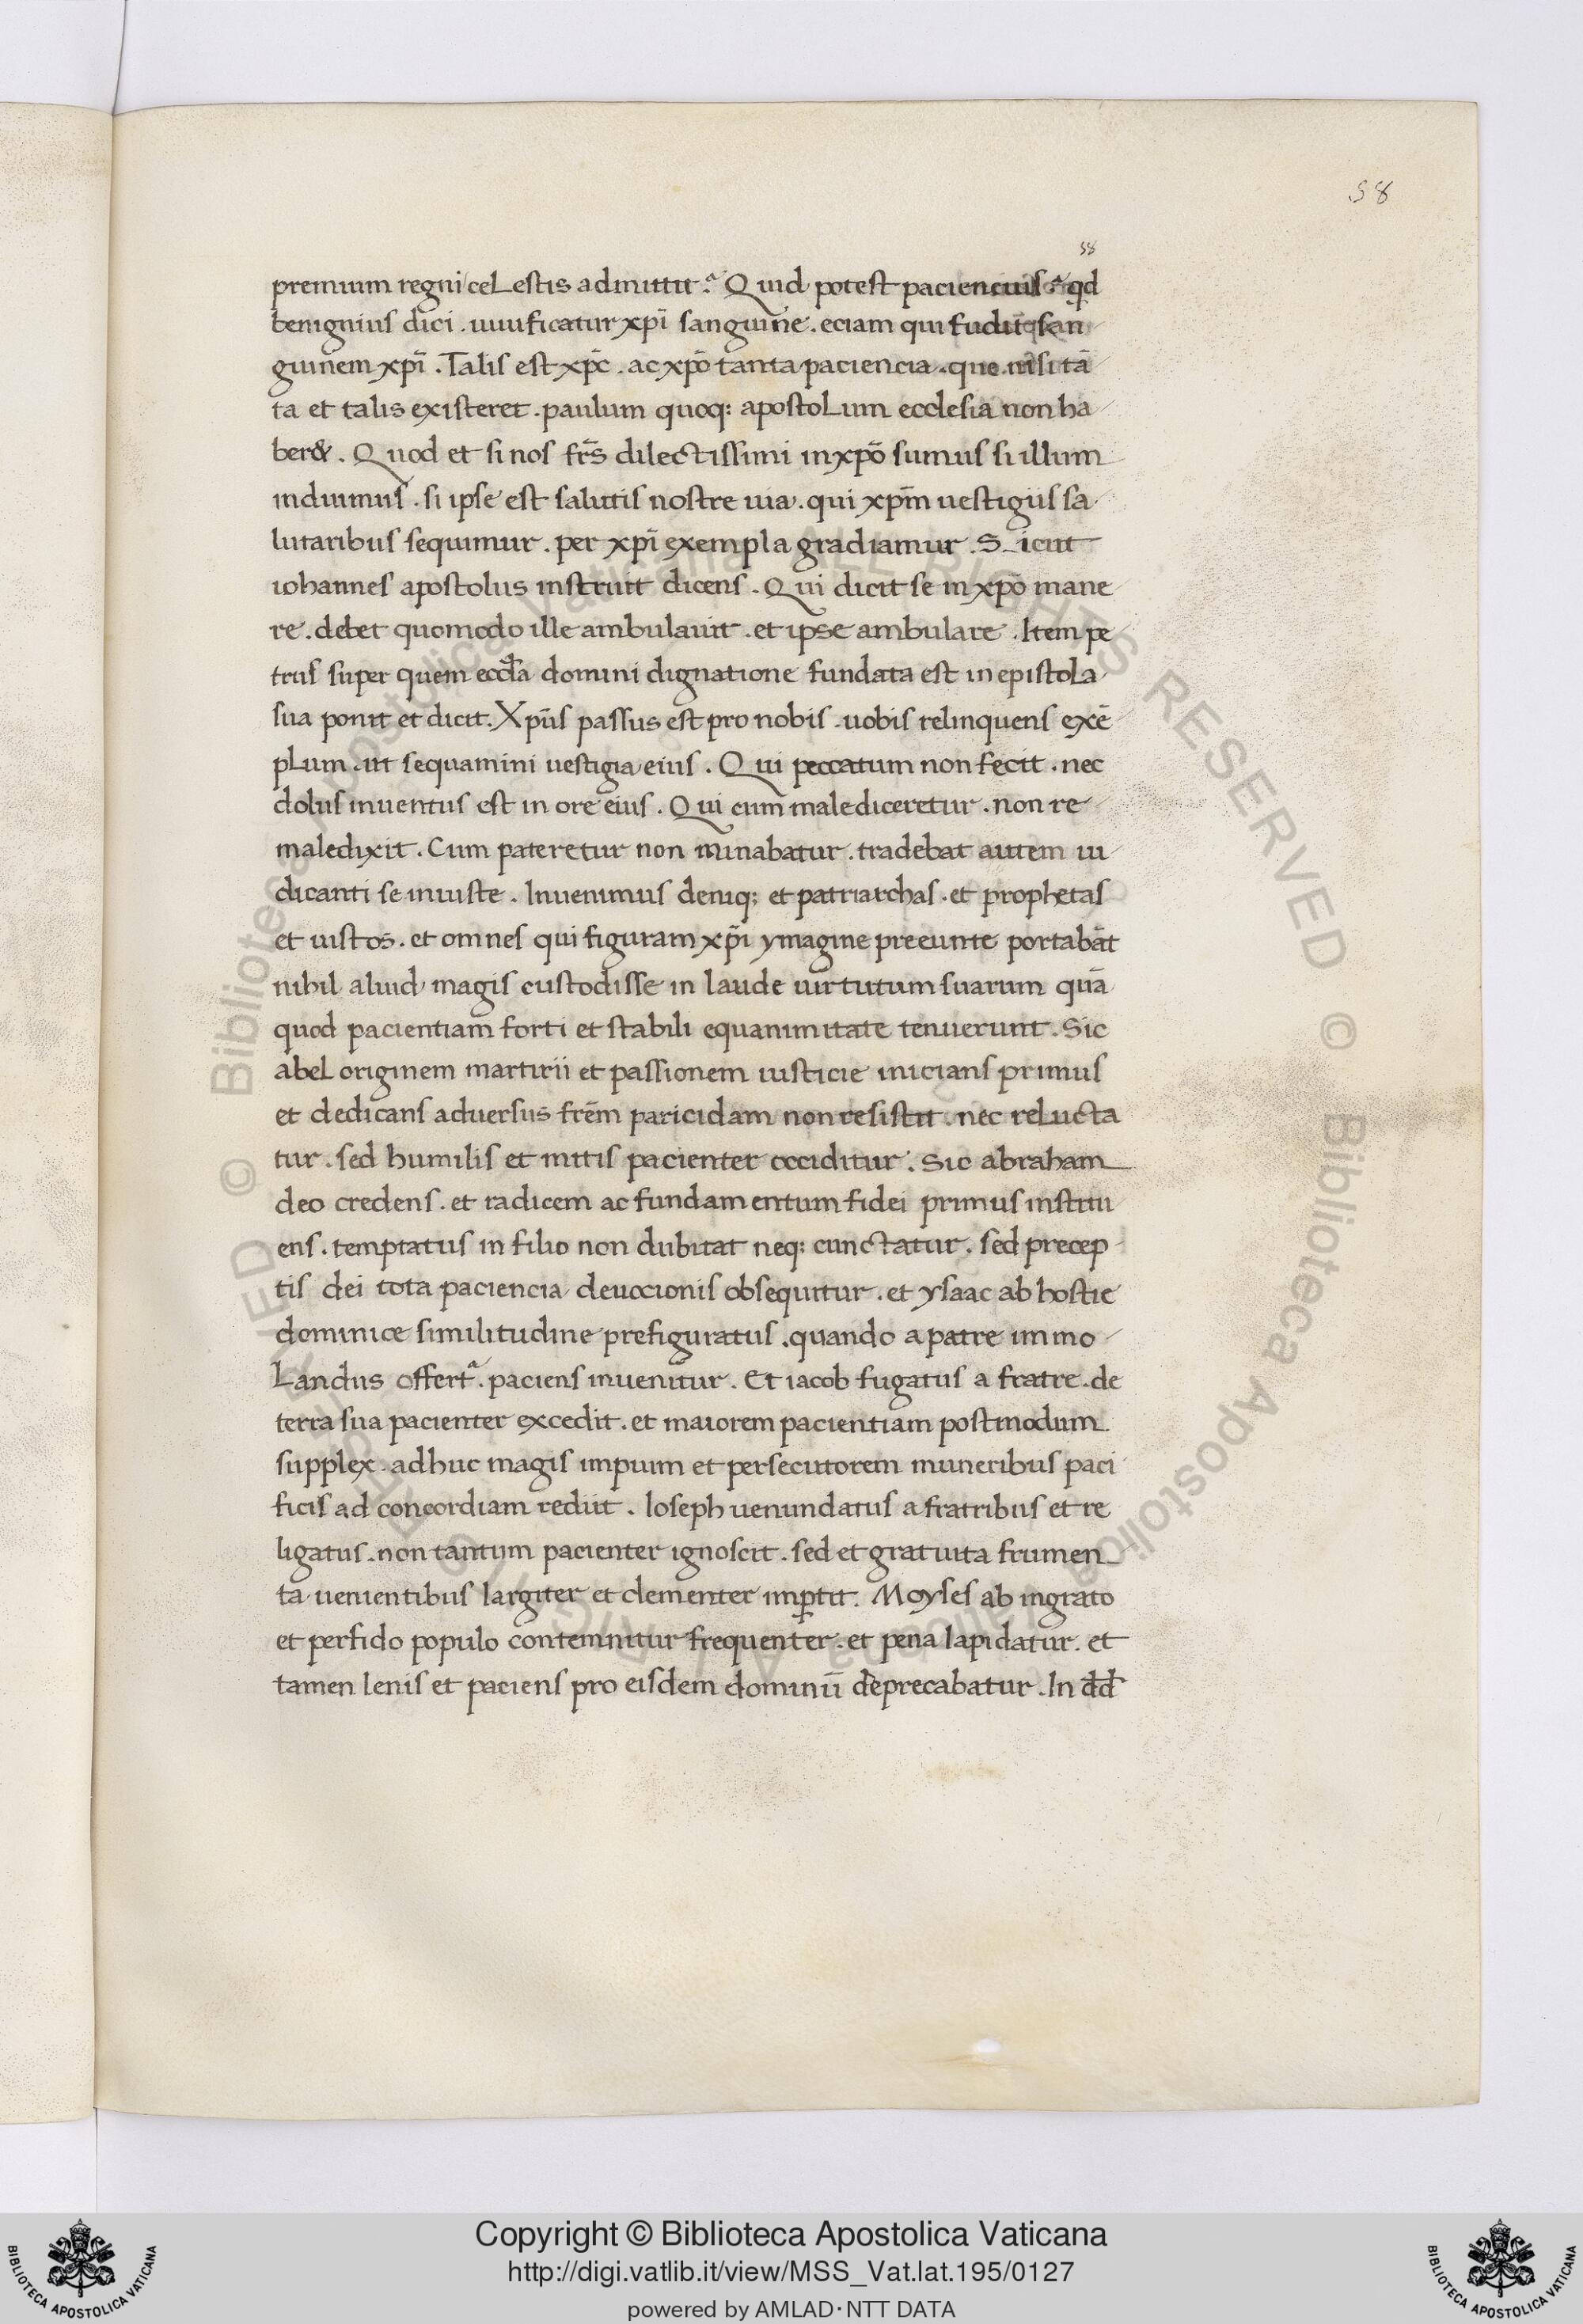 58
58
premium regni celestis admittit. Quid potest paciencius qd
benignius dici . uiuificatur xpī sanguine . eciam qui fudit san
guinem xpī . Talis est xpc̄ . ac xpō tanta paciencia . que nisi tā
ta et talis existeret . paulum quoq: apostolum ecclesia non ha
ber& . Quod et si nos frs̄ dilectissimi in xpō sumus si illum
induimus . si ipse est salutis nostre uia . qui xpm̄ uestigiis sa
lutaribus sequimur . per xpī exempla gradiamur . Sicut
iohannes apostolus instruit dicens . Qui dicit se in xpō mane
re . debet quomodo ille ambulauit . et ipse ambulare . Item pe
trus super quem eccła domini dignatione fundata est in epistola
sua ponit et dicit . Xpūs passus est pro nobis . uobis relinquens exē
plum . ut sequamini uestigia eius . Qui peccatum non fecit . nec
dolus inuentus est in ore eius . Qui cum malediceretur . non re
maledixit . Cum pateretur non minabatur . tradebat autem iu
dicanti se iniuste . Inuenimus deniq; et patriarchas . et prophetas
et iustos . et omnes qui figuram xpī ymagine preeunte portabāt
nihil aliud magis custodisse in laude uirtutum suarum quā
quod pacientiam forti et stabili equanimitate tenuerunt . Sic
abel originem martirii et passionem iusticie inicians primus
et dedicans aduersus frēm paricidam non resistit . nec relucta
tur . sed humilis et mitis pacienter occiditur . Sic abraham
deo credens . et radicem ac fundamentum fidei primus institu
ens . temptatus in filio non dubitat neq: cunctatur . sed precep
tis dei tota paciencia deuocionis obsequitur . et ysaac ab hostie
dominice similitudine prefiguratus . quando a patre immo
landus offert . paciens inuenitur . Et iacob fugatus a fratre . de
terra sua pacienter excedit . et maiorem pacientiam postmodum
supplex . adhuc magis impium et persecutorem muneribus paci
ficis ad concordiam rediit . Ioseph uenundatus a fratribus et re
ligatus . non tantum pacienter ignoscit . sed et gratuita frumen
ta uenientibus largiter et clementer imptit . Moyses ab ingrato
et perfido populo contemnitur frequenter . et pena lapidatur . et
tamen lenis et paciens pro eisdem dominū deprecabatur . In dd̄
Copyright © Biblioteca Apostolica Vaticana
http://digi.vatlib.it/view/MSS_Vat.lat.195/0127
powered by AMLAD·NTT DATA
BIBLIOTECA APOSTOLICA VATICANA
BIBLIOTECA APOSTOLICA VATICANA